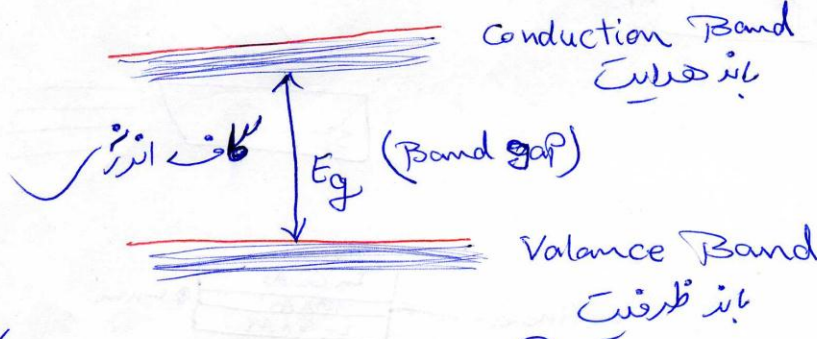 Conduction Band
باند هدایت
گاف انرژی
Eg (Band gap)
Valance Band
باند ظرفیت